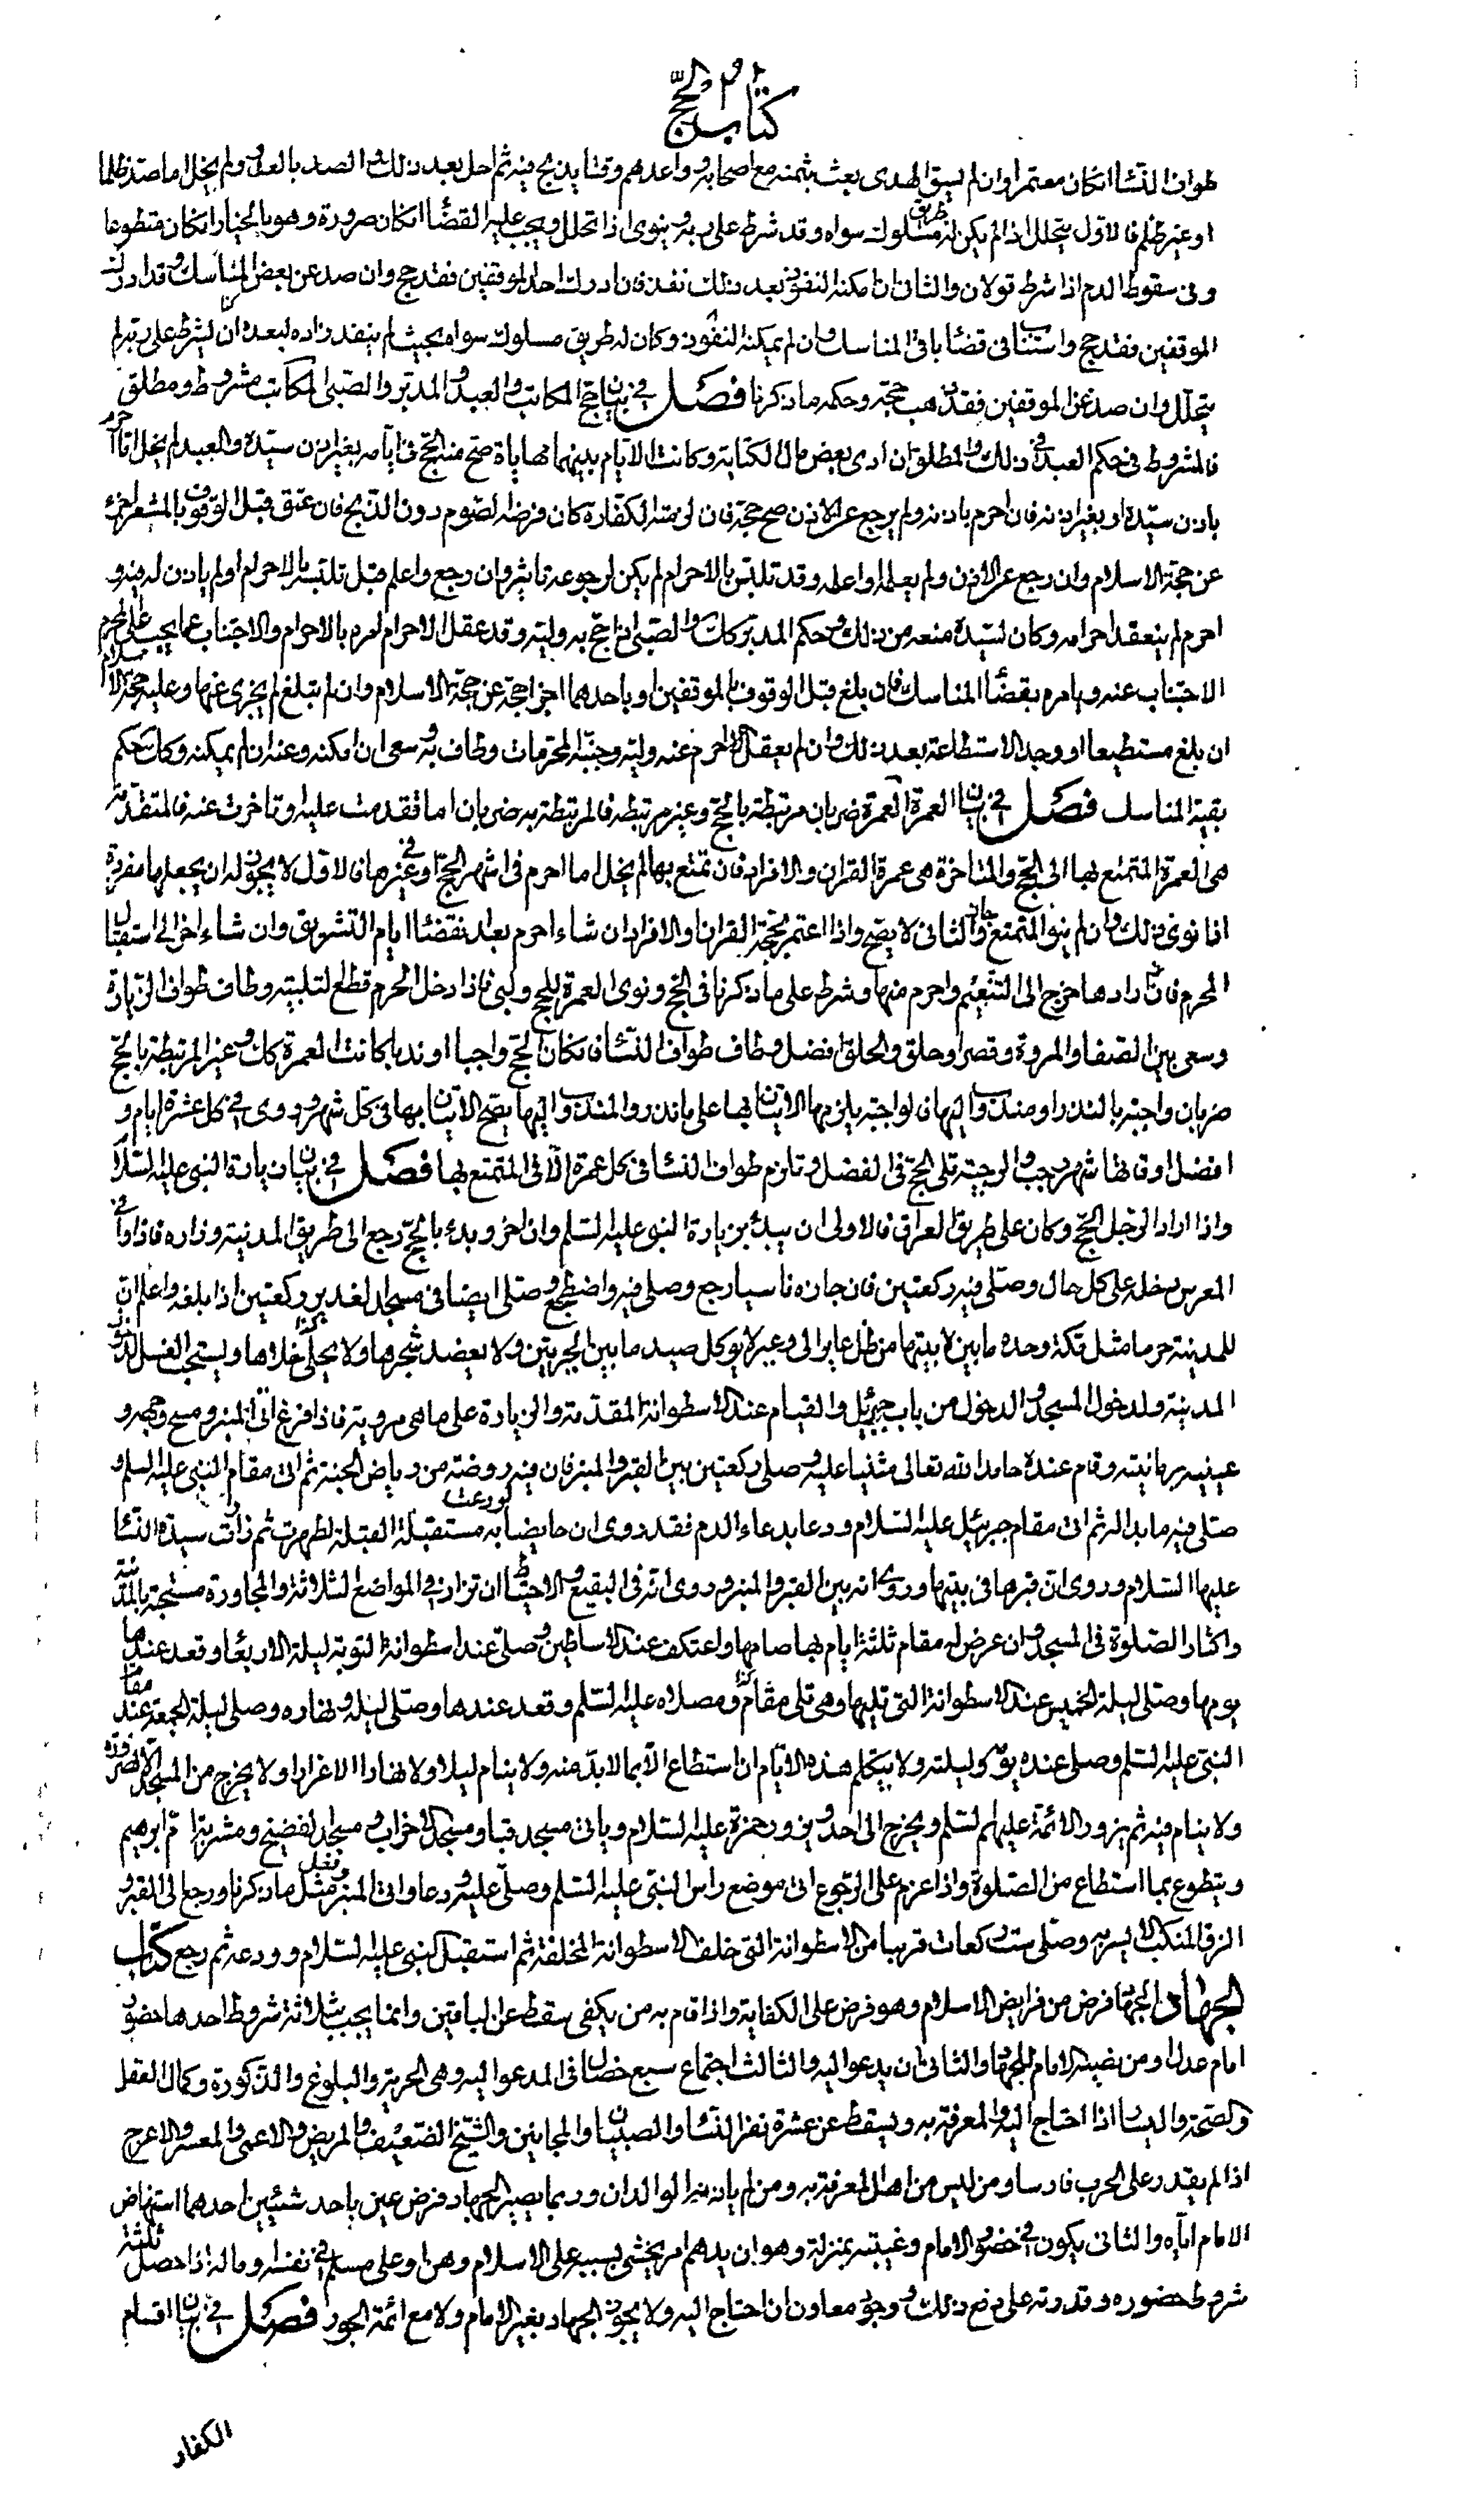 كتاب الحج
طواف النساء ان كان معتمرا وان لم يسق الهدى بعث بثمنه مع اصحابه وواعدهم وقتا يذبح فيه ثم احل بعد ذلك والصد بالعدو ولم يخل اما صد ظلما
او غير ظلم فالاول يتحلل اذا لم يكن له طريق مسلوك سواه وقد شرط على ربه وينوى اذا تحلل ويجب عليه القضاء ان كان صرورة وهو بالخيار ان كان متطوعا
وفى سقوط الدم اذا شرط قولان والثانى ان امكنه النفوذ بعد ذلك نفذ فان ادرك احد الموقفين فقد حج وان صد عن بعض المناسك وقد ادرك
الموقفين فقد حج واستناب فى قضاء باقى المناسك وان لم يمكنه النفوذ وكان له طريق مسلوك سواه بحيث لم ينفد زاده لبعده ان لم يشترط على ربه لم
يتحلل وان صد عن الموقفين فقد ذهب حجه وحكمه ما ذكرنا فصل فى بيان حج المكاتب والعبد والمدبر والصبى المكاتب مشروط ومطلق
فالمشروط فى حكم العبد فى ذلك والمطلق ان ادى بعض مال الكتابة وكانت الايام بينهما مهاياة صح منه الحج فى ايامه بغير اذن سيده والعبد لم يخل اما احرم
باذن سيده او بغير اذنه فان احرم باذنه ولم يرجع عن الاذن صح حجه فان لزمته الكفارة كان فرضه الصوم دون الذبح فان عتق قبل الوقوف بالمشعر اجزء
عن حجة الاسلام وان رجع عن الاذن ولم يعلم او اعلمه وقد تلبس بالاحرام لم يكن لرجوعه تاثير وان رجع واعلم قبل تلبسه بالاحرام او لم ياذن له فيه و
احرم لم ينعقد احرامه وكان لسيده منعه من ذلك وحكم المدبر كذلك والصبى اذا حج به وليه وقد عقل الاحرام امره بالاحرام والاجتناب عما يجب على المحرم
الاجتناب عنه ويامره بقضاء المناسك فان بلغ قبل الوقوف بالموقفين او باحدهما اجزا حجه عن حجة الاسلام وان لم يبلغ لم يجزى عنها وعليه حجة الاسلام
ان بلغ مستطيعا او وجد الاستطاعة بعد ذلك وان لم يعقل الاحرام احرم عنه وليه وجنبه المحرمات وطاف به وسعى ان امكنه وعنه ان لم يمكنه وكذلك حكم
بقية المناسك فصل فى بيان العمرة العمرة ضربان مرتبطة بالحج وغير مرتبطه فالمرتبطة به ضربان اما تقدمت عليه او تاخرت عنه فالمتقدمة
هى العمرة المتمتع بها الى الحج والمتاخرة هى عمرة القران والافراد فان تمتع بها لم يخل اما احرم فى اشهر الحج او فى غيرها فالاول لا يجوز له ان يجعلها مفردة
اذا نوى ذلك وان لم ينو المتمتع جاز والثانى لا يصح واذا اعتمر بحجة القران والافراد ان شاء احرم بعد انقضاء ايام التشريق وان شاء اخر الى استقبال
المحرم فان ارادها خرج الى التنعيم واحرم منها وشرط على ما ذكرنا فى الحج ونوى العمرة للحج ولبى فاذا دخل الحرم قطع التلبيه وطاف طواف الزيارة
وسعى بين الصفا والمروة وقصر او حلق والحلق افضل وطاف طواف النساء فان كان الحج واجبا او ندبا كانت العمرة كذلك وغير المرتبطة بالحج
ضربان واجبة بالنذر او مندوب اليها فالواجبة يلزمها الاتيان بها على ما نذر والمندوب اليها يصح الاتيان بها فى كل شهر وروى فى كل عشرة ايام و
افضل اوقاتها شهر رجب والرجبية تلى الحج فى الفضل وتلزم طواف النساء فى كل عمرة الا فى المتمتع بها فصل فى بيان زيارة النبى عليه السلام
واذا اراد الرجل الحج وكان على طريق العراق فالاولى ان يبدء بزيارة النبى عليه السلم وان اخر وبدء بالحج رجع الى طريق المدينة وزاره فاذا وافى
المعرس دخله على كل حال وصلى فيه ركعتين فان جازه ناسيا رجع وصلى فيه واضطجع وصلى ايضا فى مسجد الغدير ركعتين اذا بلغه واعلم ان
للمدينة حرما مثل مكة وحده ما بين لابيتها من ظل عاير الى وعير لا يوكل صيد ما بين الحرتين ولا يعضد شجرها ولا يختلى خلاها ويستحب الغسل لدخول
المدينة ولدخول المسجد والدخول من باب جبرئيل والقيام عند الاسطوانة المقدمة والزيارة على ما هى مروية فاذا فرغ اتى المنبر ومسح وجهه و
عينيه برمانيته وقام عنده حامدا لله تعالى مثنيا عليه وصلى ركعتين بين القبر والمنبر فان فيه روضة من رياض الجنة ثم اتى مقام النبى عليه السلم و
صلى فيه ما بدا له ثم اتى مقام جبرئيل عليه السلام ودعا بدعاء الدم فقد روى ان حايضا لو دعت به مستقبلة القبلة لطهرت ثم زار سيدة النساء
عليها السلام وروى ان قبرها فى بيتها وروى انه بين القبر والمنبر وروى انه فى البقيع والاحتياط ان تزار فى المواضع الثلاثة والمجاورة مستحبة بالمدينة
واكثار الصلوة فى المسجد وان عرض له مقام ثلثة ايام بها صامها واعتكف عند الاساطين وصلى عند اسطوانة التوبة ليلة الاربعاء وقعد عندها
يومها وصلى ليلة الخميس عند الاسطوانة التى تليها وهى تلى مقامه ومصلاه عليه السلم وقعد عندها وصلى ليله ونهاره وصلى ليلة الجمعة عند مقام
النبى عليه السلم وصلى عنده يومه وليلته ولا يتكلم هذه الايام ان استطاع الا بما لا بد منه ولا ينام ليلا ولا نهارا الا غرارا ولا يخرج من المسجد الا لضرورة
ولا ينام فيه ثم يزور الائمة عليهم السلم ويخرج الى احد ويزور حمزة عليه السلام وياتى مسجد قبا ومسجد الاحزاب ومسجد الفضيخ ومشربة ام ابرهيم
ويتطوع بما استطاع من الصلوة واذا عزم على الرجوع اتى موضع راس النبى عليه السلم وصلى عليه ودعا واتى المنبر وفعل مثل ما ذكرنا ورجع الى القبر و
الزق المنكب الايسر به وصلى ست ركعات قريبا من الاسطوانة التى خلف الاسطوانة المخلفة ثم استقبل النبى عليه السلام وودعه ثم رجع كتاب
الجهاد الجهاد فرض من فرايض الاسلام وهو فرض على الكفاية واذا قام به من يكفى سقط عن الباقين وانما يجب بثلاثة شروط احدها حضور
امام عدل او من نصبه الامام للجهاد والثانى ان يدعو اليه والثالث اجتماع سبع خصال فى المدعو اليه وهى الحرية والبلوغ والذكورة وكمال العقل
والصحة واليسار اذا احتاج اليه والمعرفة به ويسقط عن عشرة نفر النساء والصبيان والمجانين والشيخ الضعيف والمريض والاعمى والمعسر والاعرج
اذا لم يقدر على الحرب فارسا ومن ليس من اهل المعرفة به ومن لم ياذن له الوالدان وربما يصير الجهاد فرض عين باحد شيئين احدهما استنهاض
الامام اياه والثانى يكون فى حضور الامام وغيبته بمنزلة وهو ان يدهم امر يخشى بسببه على الاسلام وهن او على مسلم فى نفسه وماله اذا حصل ثلثة
شروط حضوره وقدرته على دفع ذلك ووجود معاون ان احتاج اليه ولا يجوز الجهاد بغير الامام ولا مع ائمة الجور فصل فى بيان اقسام
الكفار